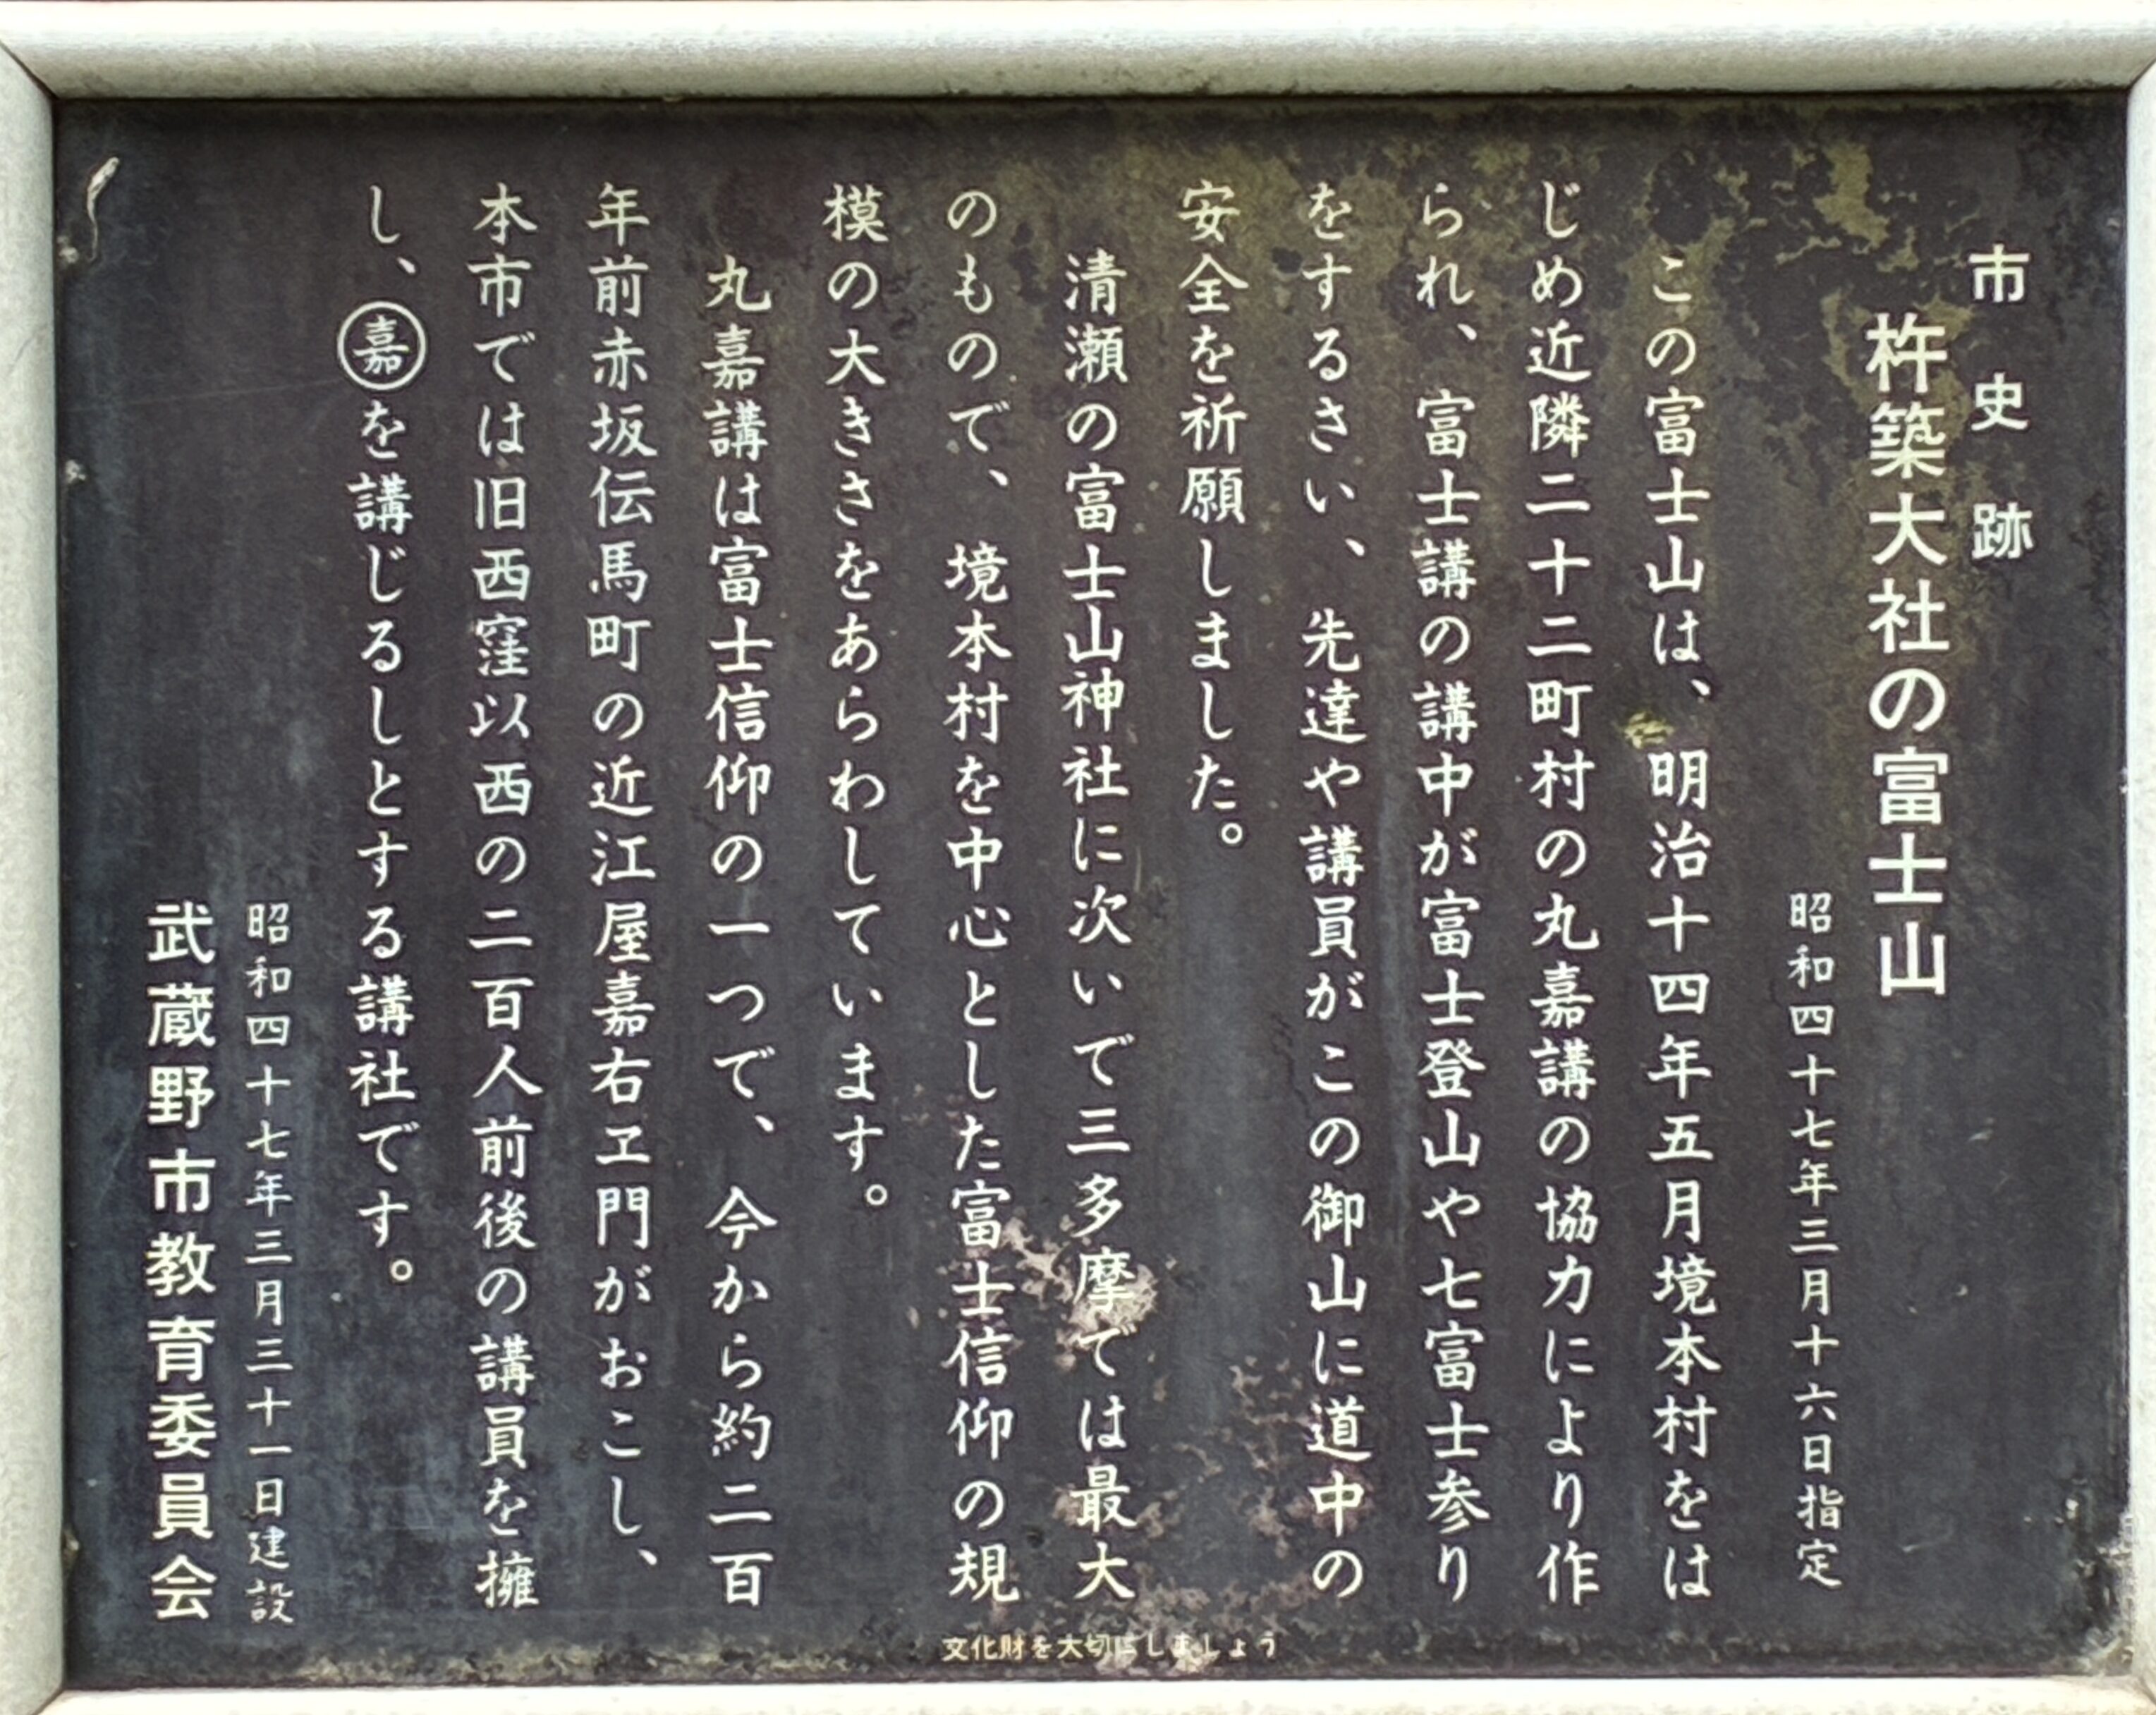 市史跡
杵築大社の富士山
昭和四十七年三月十六日指定
この富士山は、明治十四年五月境本村をは
じめ近隣二十二町村の丸嘉講の協力により作
られ、富士講の講中が富士登山や七富士参り
をするさい、先達や講員がこの御山に道中の
安全を祈願しました。
清瀬の富士山神社に次いで三多摩では最大
のもので、境本村を中心とした富士信仰の規
模の大きさをあらわしています。
丸嘉講は富士信仰の一つで、今から約二百
年前赤坂伝馬町の近江屋嘉右ヱ門がおこし、
本市では旧西窪以西の二百人前後の講員を擁
し、㊎を講じるしとする講社です。
昭和四十七年三月三十一日建設
武蔵野市教育委員会
文化財を大切にしましょう